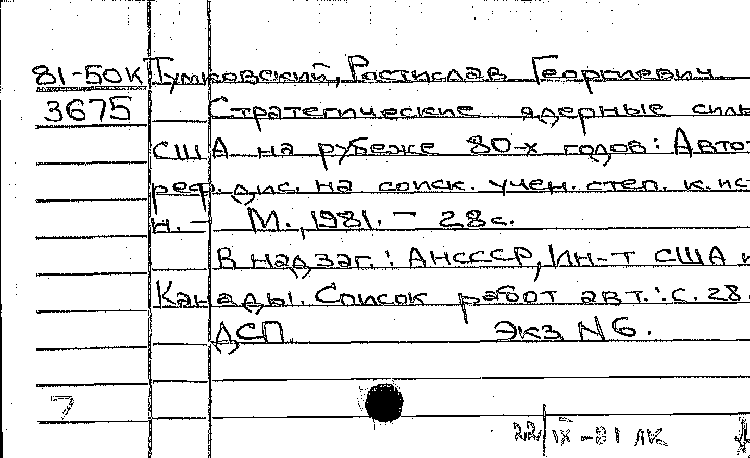 81-50К Тумковский, Ростислав Георгиевич
3675 Стратегические ядерные силы
США на рубеже 80-х годов: Авто
реф. дис. на соиск. учен. степ. к. ис
н. - М., 1981. - 28с.
В надзаг.: АНСССР, Ин-т США и
Канады. Список работ авт.: с. 28
ДСП. Экз N6.
7
22/IX-81 ЛК